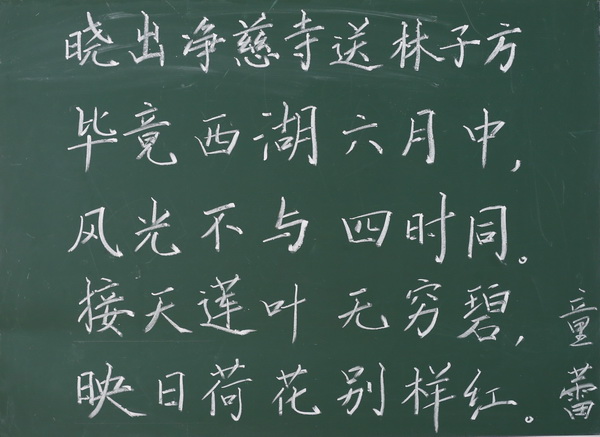 晓出净慈寺送林子方
毕竟西湖六月中,
风光不与四时同。
接天莲叶无穷碧,
映日荷花别样红。
童蕾